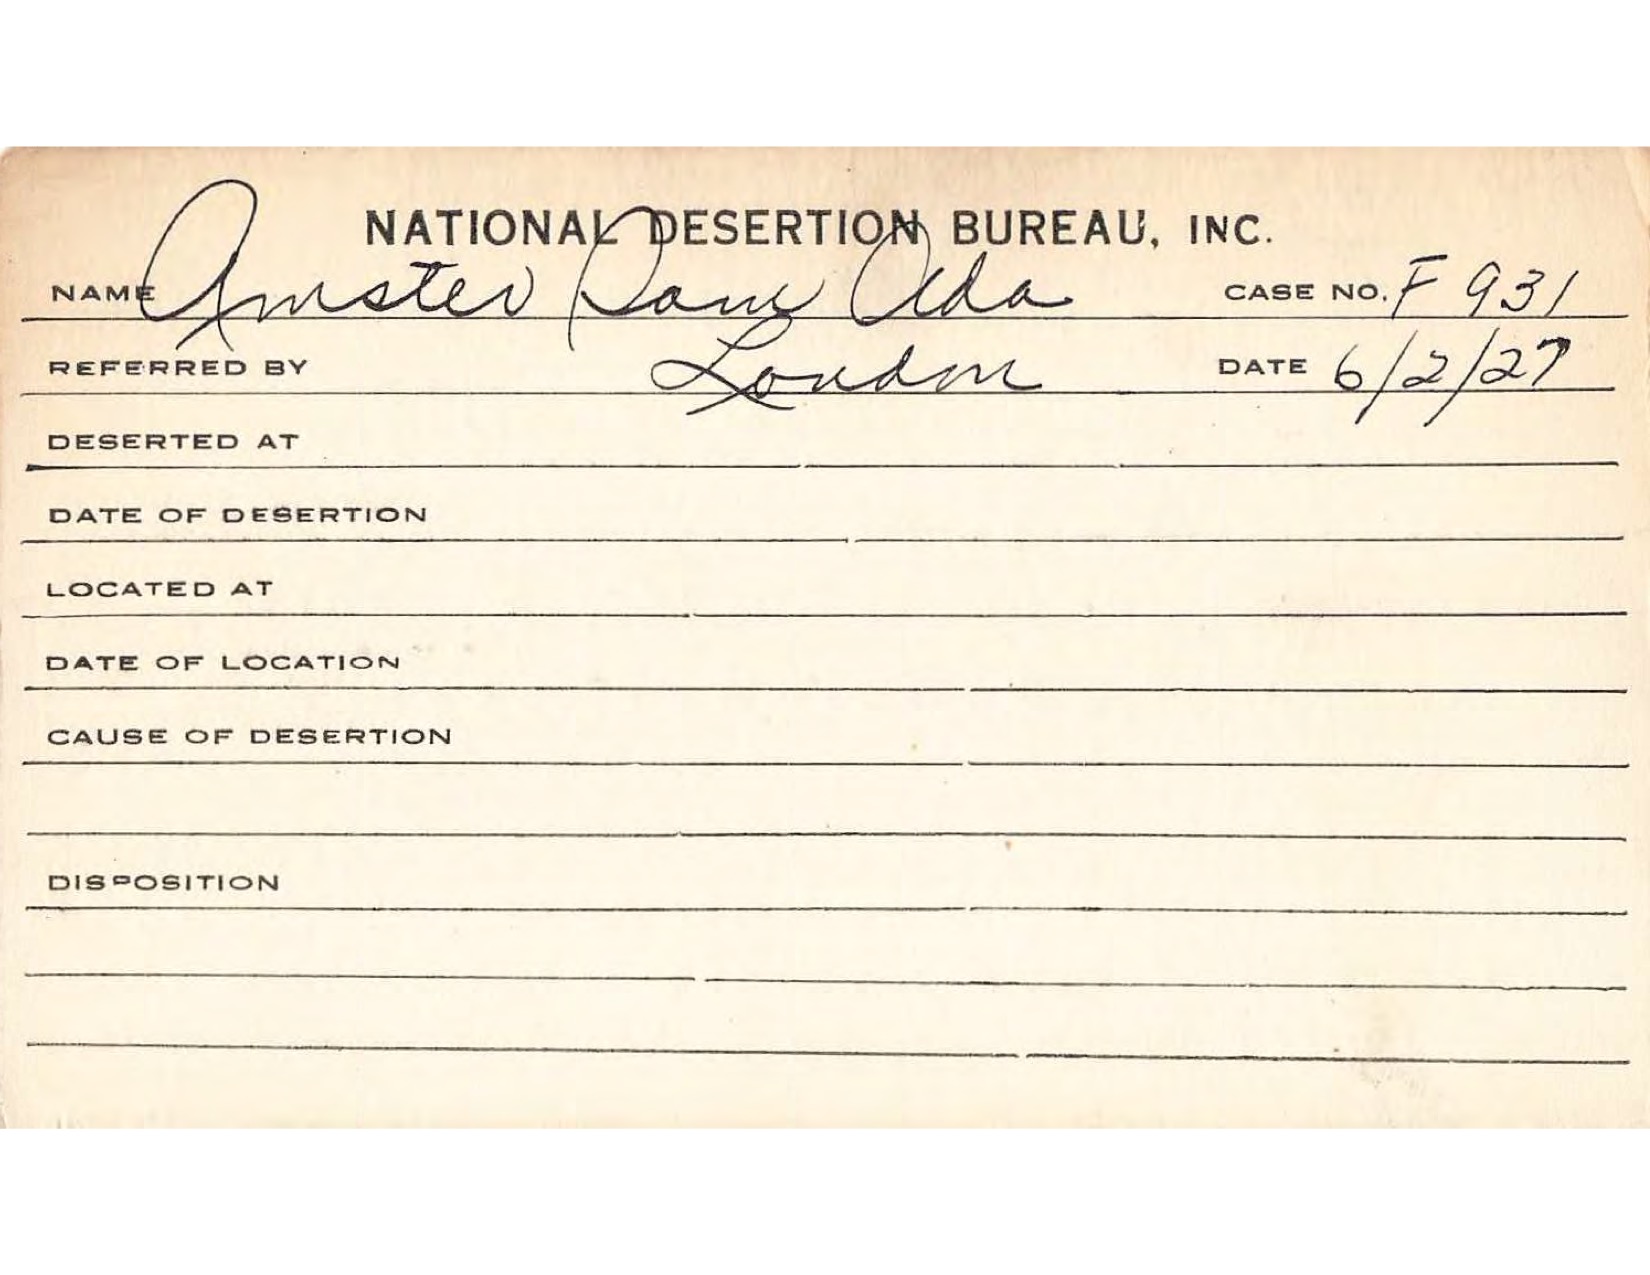 NATIONAL DESERTION BUREAU, INC.
NAME Amster Sam Ada CASE NO. F 931
REFERRED BY London DATE 6/2/27
DESERTED AT
DATE OF DESERTION
LOCATED AT
DATE OF LOCATION
CAUSE OF DESERTION
DISPOSITION